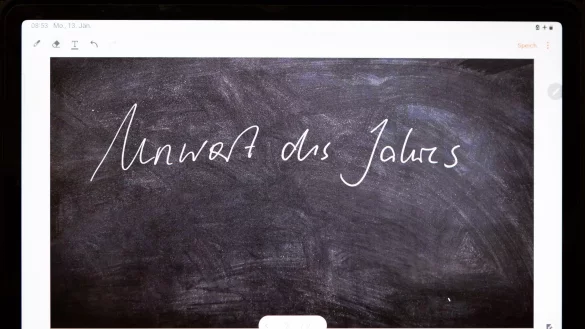 09:53 Mo. 13. Jan.
T
Speich.
Unwort des Jahres